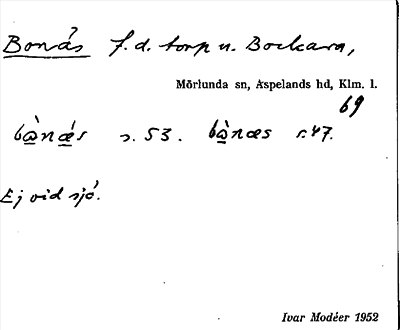 Bonäs f.d. torp u. Bockara,
Mörlunda sn, Aspelands hd, Klm. l.
69
bànǽs s. 53. bànæs s. 47.
Ej vid sjö.
Ivar Modéer 1952